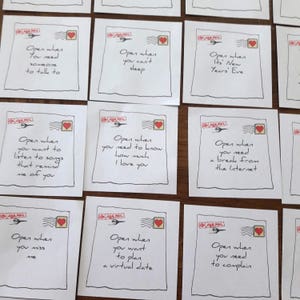 Open when
You need
someone
to talk to
Open when
you can't
sleep
Open when
It's New
Years Eve
Open when
you want to
listen to songs
that remind
me of you
Open when
you need to know
how much
I love you
Open when
you need
a break from
the Internet
Open when
you miss
me
Open when
you want
to plan
a virtual date
Open when
you need
to complain